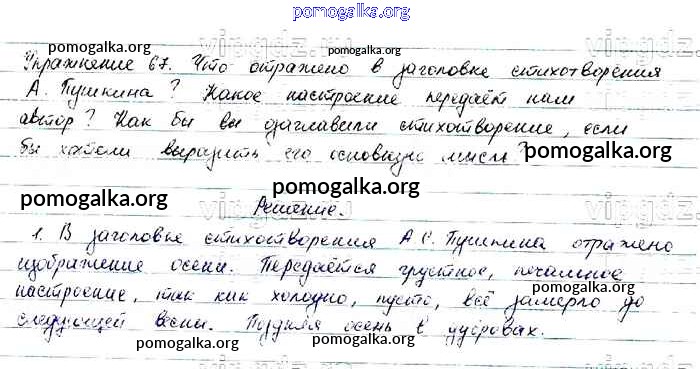 pomogalka.org
pomogalka.org
pomogalka.org
Упражнение 67. Что отражено в заголовке стихотворения
А. Пушкина? Какое настроение передаёт нам
pomogalka.org
pomogalka.org
автор? Как бы вы озаглавили стихотворение, если
бы хотели выразить его основную мысль?
pomogalka.org
pomogalka.org
pomogalka.org
Решение.
1. В заголовке стихотворения А.С. Пушкина отражено
pomogalka.org
изображение осени. Передаётся грустное, печальное
настроение, так как холодно, пусто, всё замерло до
pomogalka.org
следующей весны. Поздняя осень в
pomogalka.org
pomogalka.org